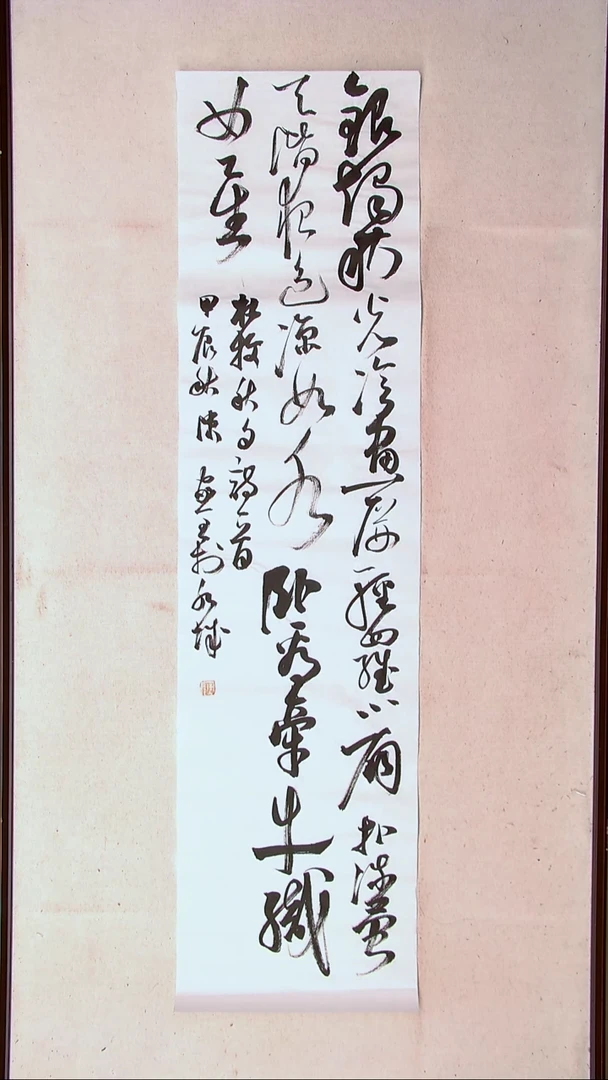 銀燭秋光冷畫屏輕羅小扇扑流螢
天階夜色涼如水臥看牽牛織
女星
杜牧秋夕詩一首
甲辰秋